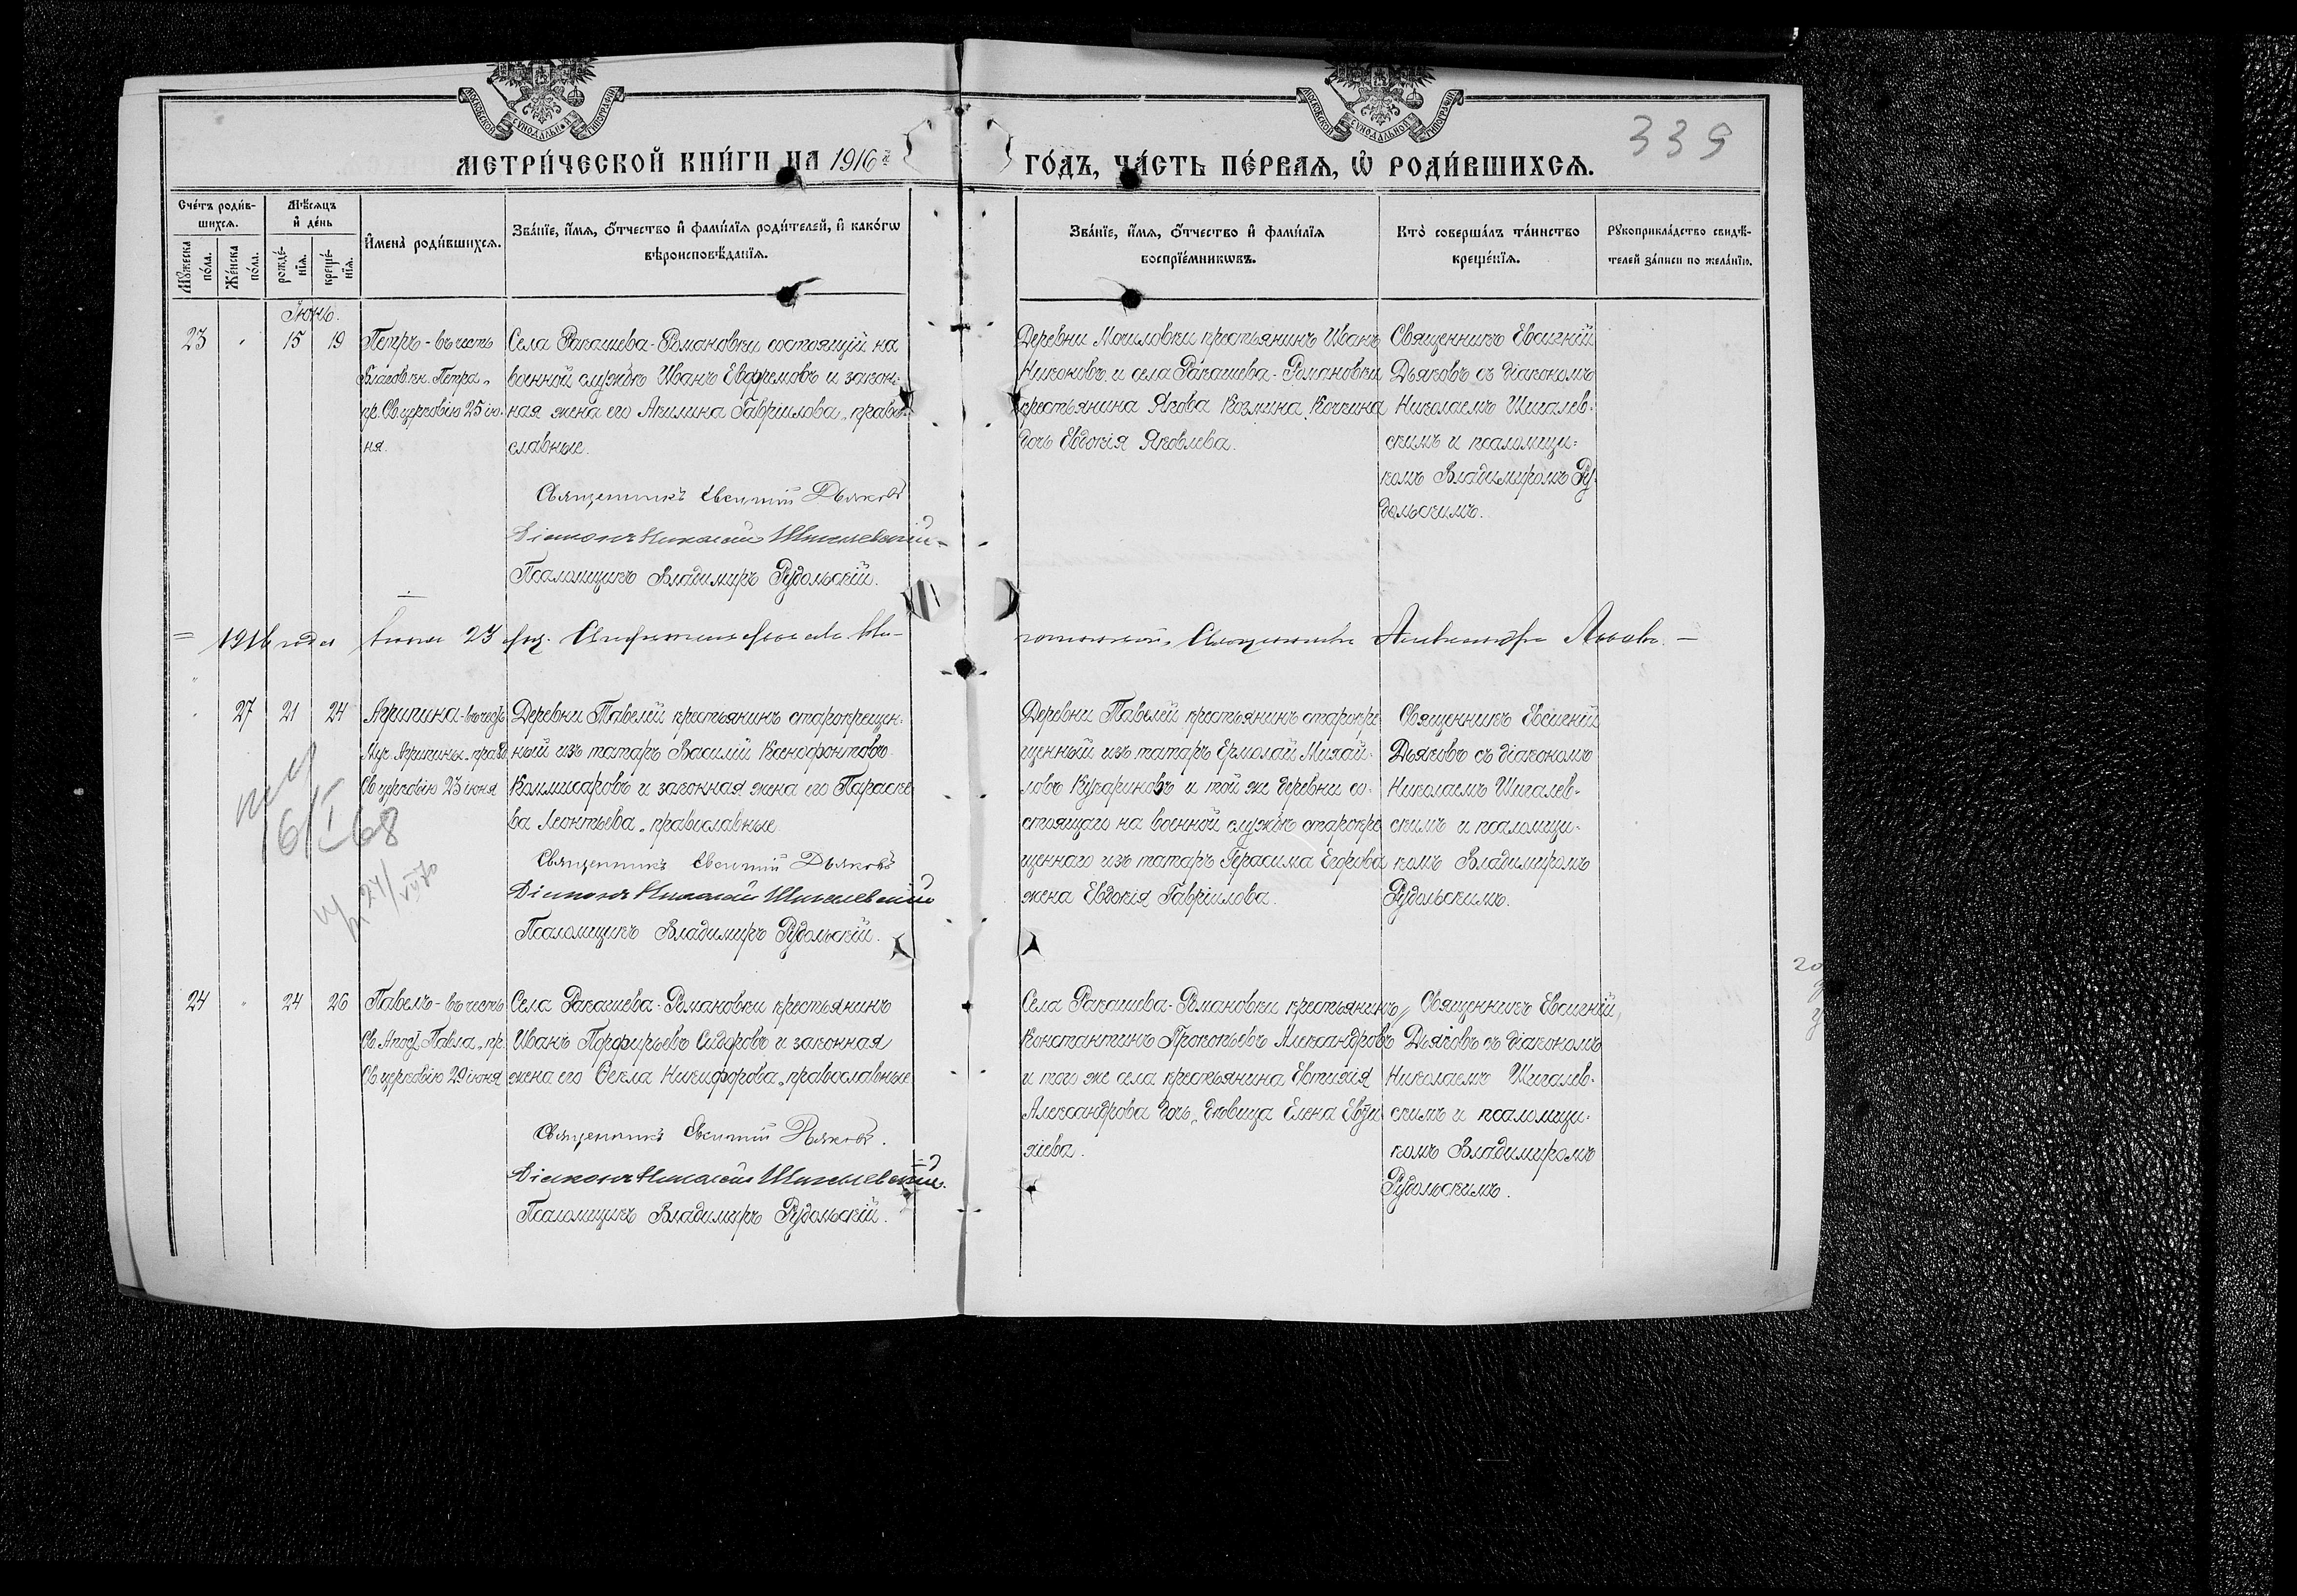 МОСКОВСКОЙ СѴНОДАЛЬНОЙ ТИПОГРАФІИ
МОСКОВСКОЙ СѴНОДАЛЬНОЙ ТИПОГРАФІИ
339
МЕТРИ́ЧЕСКОЙ КНИ́ГИ НА 1916й ГО́ДЪ, ЧА́СТЬ ПЕ́РВАѦ, Ѽ РОДИ́ВШИХСѦ.
Сче́тъ роди́вшихсѧ.
Мꙋ́жеска по́ла.
Же́нска по́ла.
Мѣ́сѧцъ и҆ де́нь
рожде́нїѧ.
креще́нїѧ.
И҆мена̀ роди́вшихсѧ.
Зва́нїе, и҆́мѧ, ѻ҆́тчество и҆ фами́лїѧ роди́телей, и҆ како́гѡ
вѣроисповѣ́данїѧ.
Зва́нїе, и҆́мѧ, ѻ҆́тчество и҆ фами́лїѧ
воспрїе́мникѡвъ.
Кто̀ соверша́лъ та́инство
креще́нїѧ.
Рꙋкоприкла́дство свидѣ́-
телей за́писи по жела́нїю.
Іюнь.
23 15 19
Петръ - въ честь
Благов. кн. Петра,
пр. Св. церковію 25 ію-
ня.
Села Ракашева-Романовки состоящій на
военной службѣ Иванъ Евфремовъ и закон-
ная жена его Акилина Гавріилова, право-
славные.
Священникъ Евсигній Дьяковъ
Діаконъ Николай Шигалевскій
Псаломщикъ Владиміръ Рудольскій.
Деревни Мочиловки крестьянинъ Иванъ
Никоновъ и села Ракашева-Романовки
крестьянина Якова Козмина Кочкина
дочь Евдокія Яковлева.
Священникъ Евсигній
Дьяковъ съ діакономъ
Николаемъ Шигалев-
скимъ и псаломщи-
комъ Владиміромъ Ру-
дольскимъ.
1916 года іюня 27 Священникъ Александръ
27 21 24
Агрипина - въ честь
Муч. Агрипины, празд.
Св. церковію 23 іюня
Деревни Тавелей крестьянинъ старокрещен-
ный изъ татаръ Василій Ксенофонтовъ
Коммисаровъ и законная жена его Параске-
ва Леонтьева, православные
Священникъ Евсигній Дьяковъ
Діаконъ Николай Шигалевскій
Псаломщикъ Владиміръ Рудольскій.
Деревни Тавелей крестьянинъ старокре-
щенный изъ татаръ Ермолай Михай-
ловъ Кугариновъ и той же деревни со-
стоящаго на военной службѣ старокре-
щеннаго изъ татаръ Герасима Егорова
жена Евдокія Гавріилова.
Священникъ Евсигній
Дьяковъ съ діакономъ
Николаемъ Шигалев-
скимъ и псаломщи-
комъ Владиміромъ
Рудольскимъ.
16/I 68
24/VII 70
24 24 26
Павелъ - въ честь
Св. Апост. Павла, пр.
Св. церковію 29 іюня
Села Ракашева-Романовки крестьянинъ
Иванъ Порфирьевъ Сидоровъ и законная
жена его Ѳекла Никифорова, православные
Священникъ Евсигній Дьяковъ.
Діаконъ Николай Шигалевскій.
Псаломщикъ Владиміръ Рудольскій.
Села Ракашева-Романовки крестьянинъ
Константинъ Прокопьевъ Александровъ
и того же села крестьянина Евтихія
Александрова дочь, дѣвица Елена Евти-
хіева.
Священникъ Евсигній
Дьяковъ съ діакономъ
Николаемъ Шигалев-
скимъ и псаломщи-
комъ Владиміромъ
Рудольскимъ.